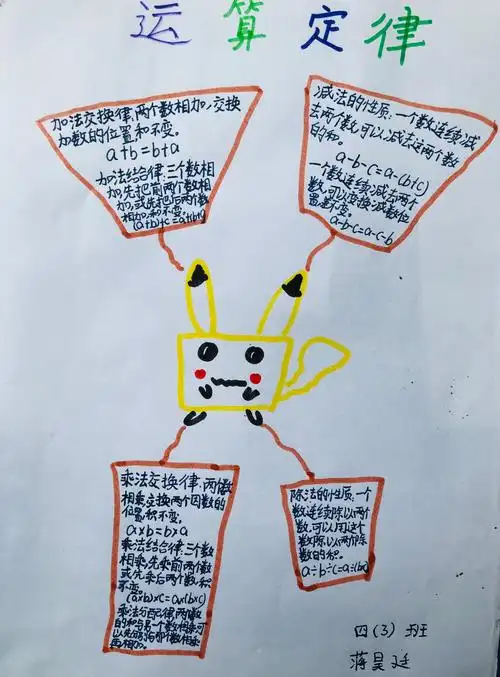 运算定律
加法交换律,两个数相加,交换
加数的位置和不变。
a+b=b+a
加法结合律,三个数相
加,先把前两个数相
加,或先把后两个数
相加,和不变。
(a+b)+c=a+(b+c)
减法的性质,一个数连续减
去两个数,可以减去这两个数
的和。
a-b-c=a-(b+c)
一个数连续减去两个
数,可以交换减数位
a-b-c=a-c-b
乘法交换律,两个数
相乘,交换两个因数的
位置积不变。
a×b=b×a
乘法结合律,三个数
相乘,先乘前两个数
或先乘后两个数,积
不变。
(a×b)×c=a×(b×c)
乘法分配律,两个数
的和与一个数相乘,可
以先分别与那个数相乘
再相加。
除法的性质,一个
数连续除以两个
数,可以用这个
数除以两个除
数的积。
a÷b÷c=a÷(b×c)
四(3)班
蒋昊廷